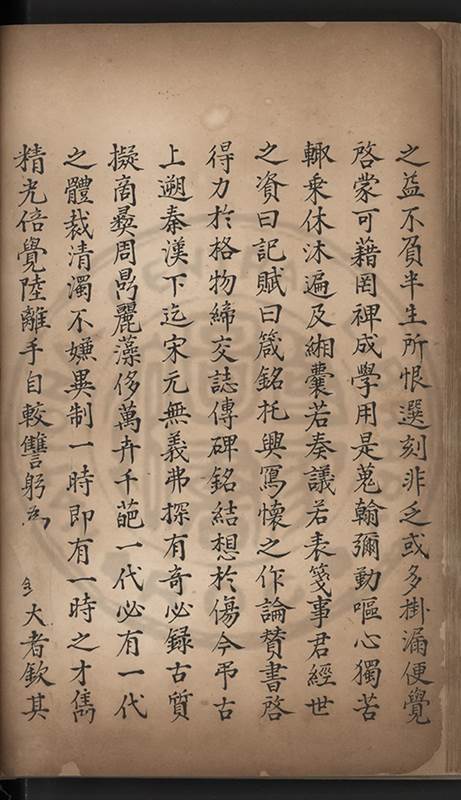 之益不負半生所恨選刻非乏或多掛漏便覺
啓蒙可藉罔裨成學用是蒐翰彌勤嘔心獨苦
輙乗休沐遍及緗囊若奏議若表箋事君經世
之資曰記賦曰箴銘托興寫懷之作論賛書啓
得力於格物締交誌傳碑銘結想於傷今弔古
上遡秦漢下迄宋元無義弗探有奇必録古質
擬商彜周鼎麗藻侈萬卉千葩一代必有一代
之體裁清濁不嫌異制一時即有一時之才雋
精光倍覺陸離手自較讐躬為
大者欽其